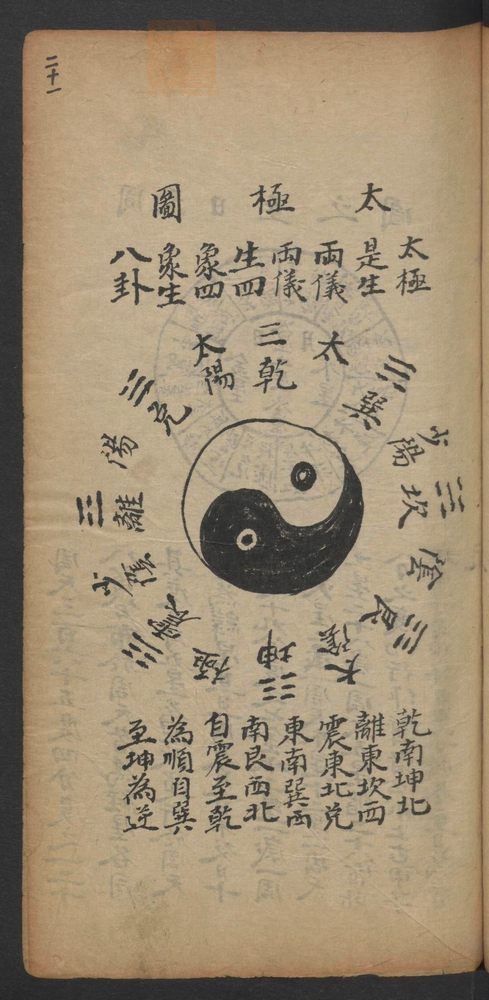 二十一
太極圖
太極
是生
兩儀
兩儀
生四
象四
象生
八卦
太
☰乾
太陽
☱兌
陽
☲離
少陰
☳震
極
☷坤
太陰
☶艮
陰
☵坎
少陽
☴巽
乾南坤北
離東坎西
震東北兌
東南巽西
南艮西北
自震至乾
為順自巽
至坤為逆